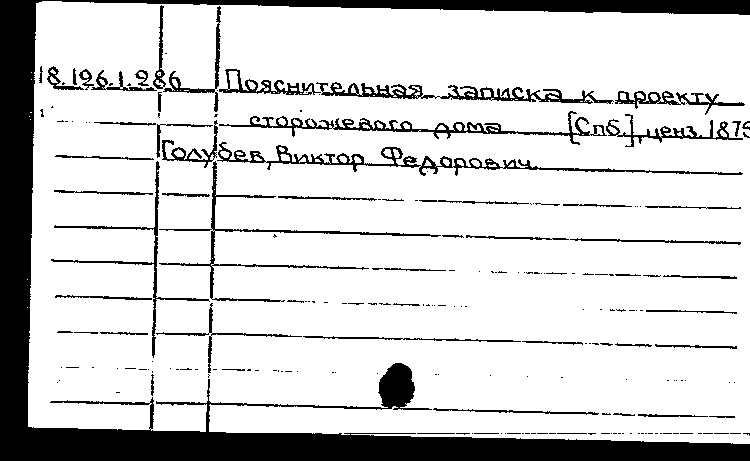 18.196.1.286 Пояснительная записка к проекту
сторожевого дома [Спб.], ценз. 1875
Голубев, Виктор Федорович